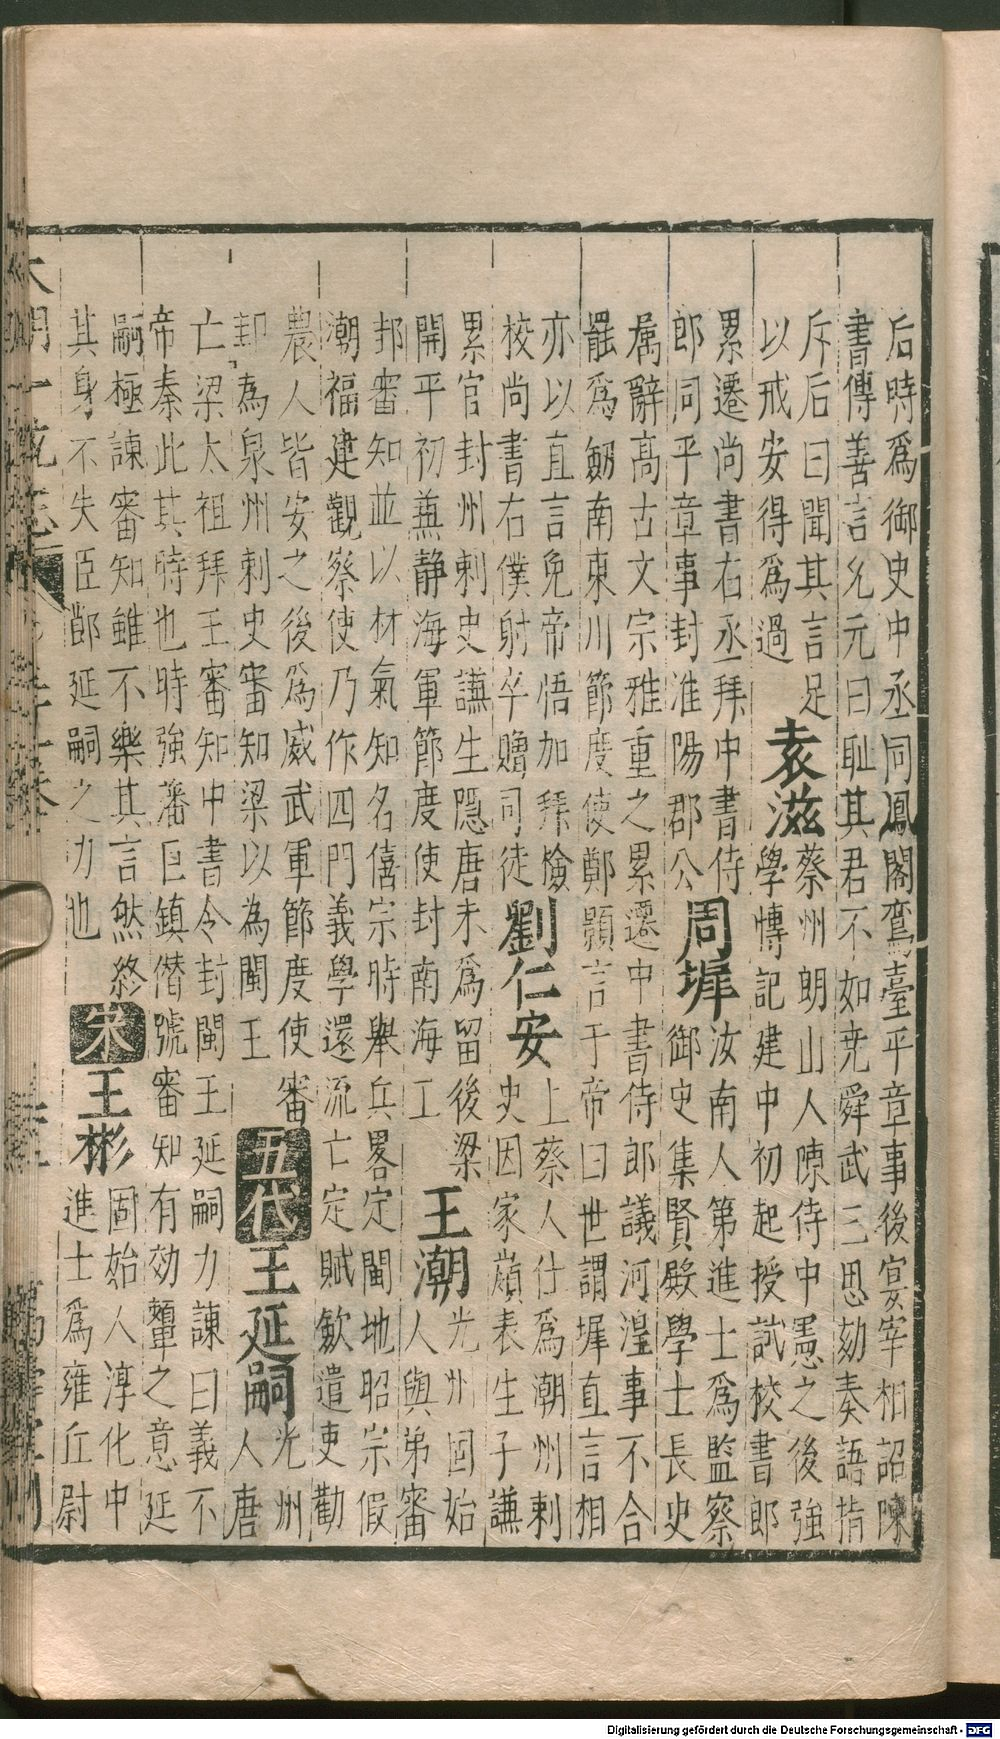 后時爲御史中丞同鳳閣鸞臺平章事後宴宰相詔陳
書傳善言允元曰耻其君不如尭舜武三思劾奏語指
斥后曰聞其言足
以戒安得爲過
袁滋
蔡州朗山人陳侍中憲之後強
學博記建中初起授試校書郎
累遷尚書右丞拜中書侍
郎同平章事封淮陽郡公
周墀
汝南人第進士爲監察
御史集賢殿學士長史
属辭高古文宗雅重之累遷中書侍郎議河湟事不合
罷爲劒南東川節度使鄭顥言于帝曰世謂墀直言相
亦以直言免帝悟加拜檢
校尚書右僕射卒贈司徒
劉仁安
上蔡人仕爲潮州剌
史因家嶺表生子謙
累官封州剌史謙生隱唐末爲留後梁
開平初兼静海軍節度使封南海工
王潮
光州固始
人與弟審
邽審知並以材氣知名僖宗時舉兵畧定閩地昭宗假
潮福建觀察使乃作四門義學還流亡定賦歛遣吏勸
農人皆安之後爲威武軍節度使審
邽為泉州剌史審知梁以為閩王
五代
王延嗣
光州
人唐
亡梁太祖拜王審知中書令封閩王延嗣力諫曰義不
帝秦此其時也時強藩巨鎮僭號審知有効顰之意延
嗣極諫審知雖不樂其言然終
其身不失臣節延嗣之力也
宋
王彬
固始人淳化中
進士爲雍丘尉
Digitalisierung gefördert durch die Deutsche Forschungsgemeinschaft - DFG